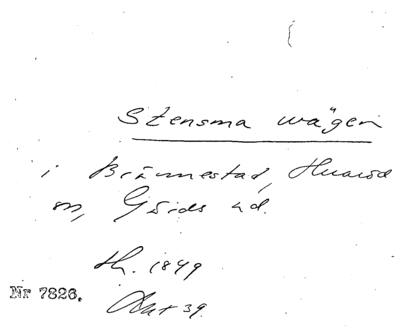 Stensma vägen
i Brännestad, Huaröd
sn, Gärds hd.
th. 1849
Nr 7826. Akt 39.